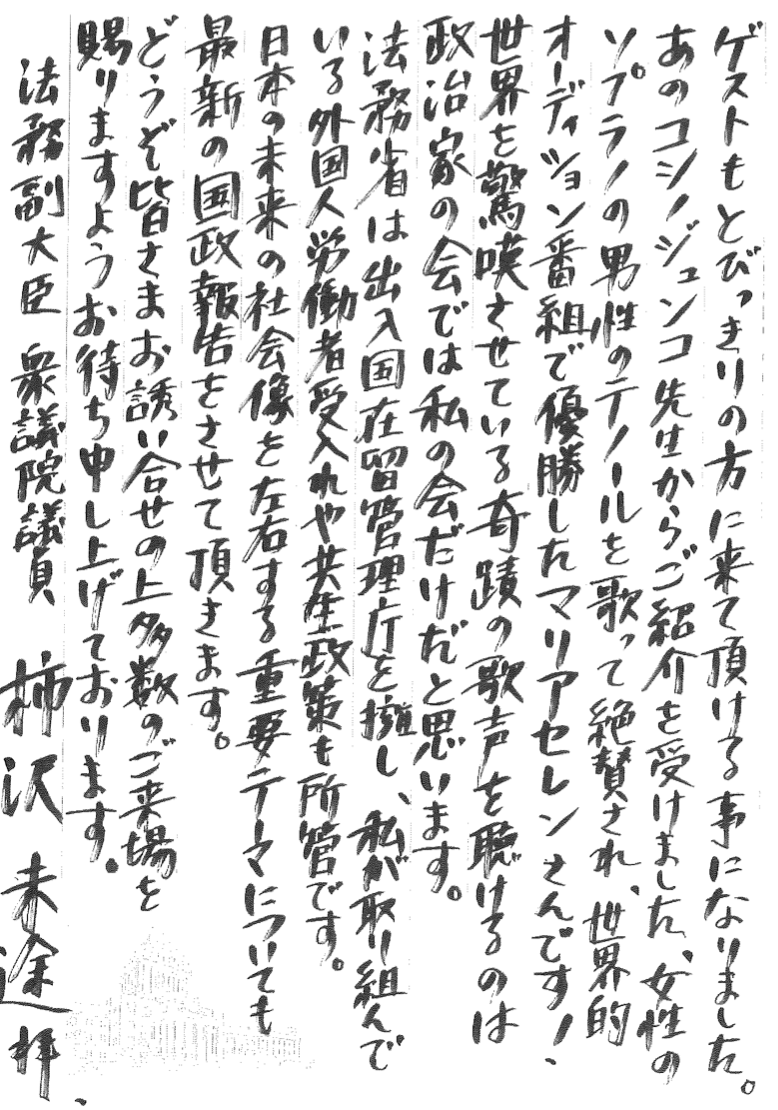 ゲストもとびっきりの方に来て頂ける事になりました。
あのコシノジュンコ先生からご紹介を受けました、女性の
ソプラノの男性のテノールを歌って絶賛され、世界的
オーディション番組で優勝したマリアセレンさんです!、
世界を驚嘆させている奇蹟の歌声を聴けるのは
政治家の会では私の会だけだと思います。
法務省は出入国在留管理庁を擁し、私が取り組んで
いる外国人労働者受入れや共生政策も所管です。
日本の未来の社会像を左右する重要テーマについても
最新の国政報告をさせて頂きます。
どうぞ皆さまお誘い合せの上多数のご来場を
賜りますようお待ち申し上げております。
法務副大臣 衆議院議員 柿沢未途拝、